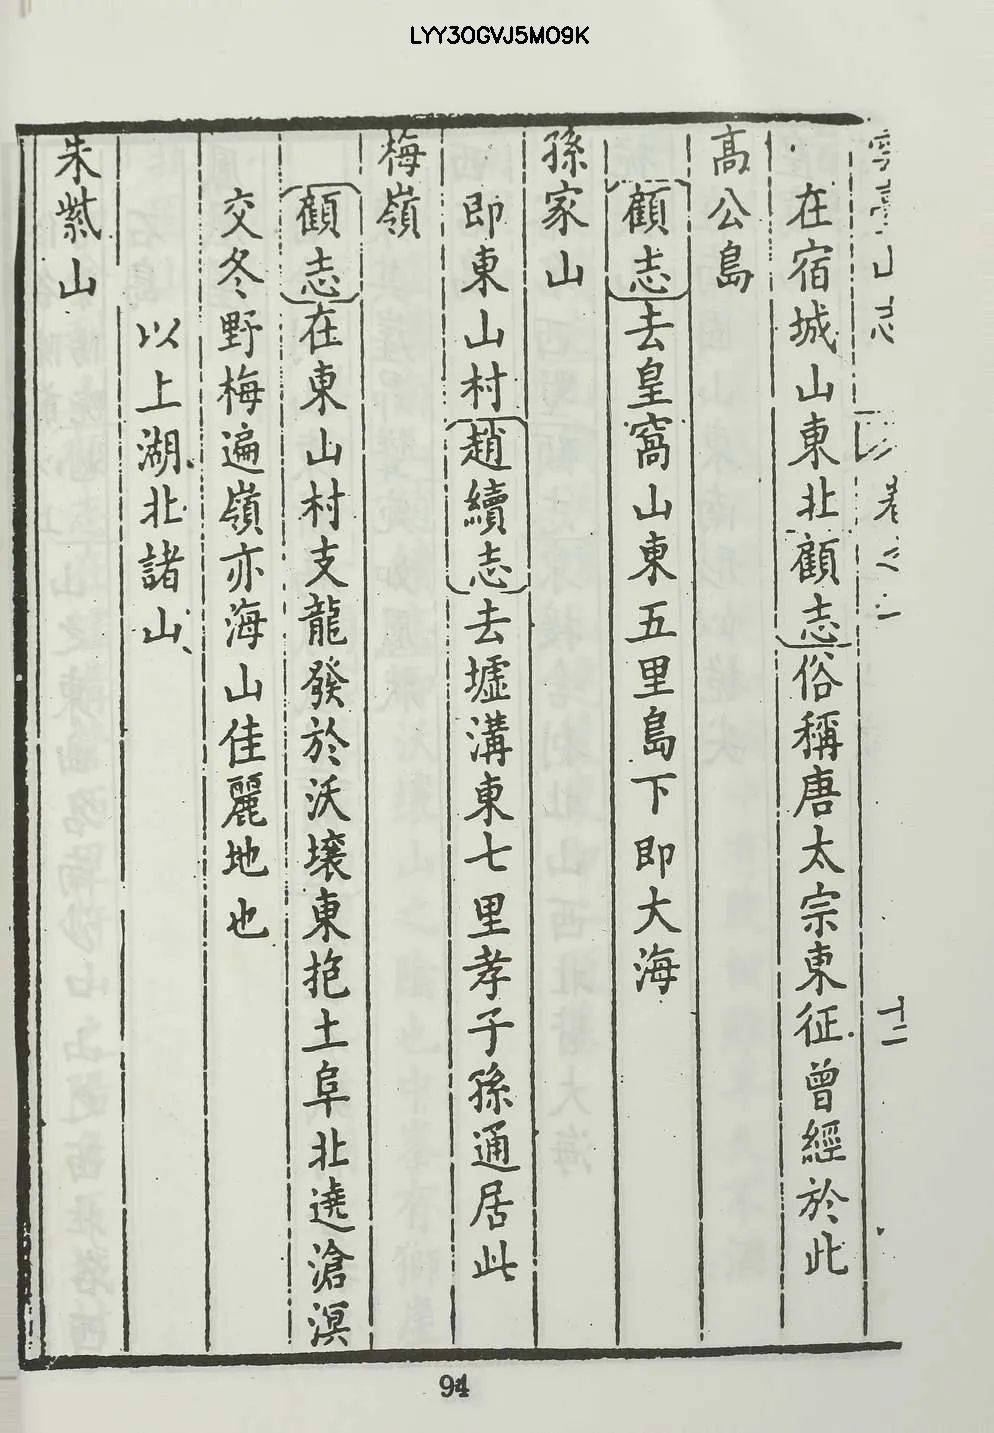 LYY30GVJ5M09K
卷之二
十二
在宿城山東北顧志俗稱唐太宗東征曾經於此
高公島
顧志去皇窩山東五里島下即大海
孫家山
即東山村趙續志去墟溝東七里孝子孫通居此
梅嶺
顧志在東山村支龍發於沃壤東抱土阜北遶滄溟
交冬野梅遍嶺亦海山佳麗地也
以上湖北諸山
朱紫山
94